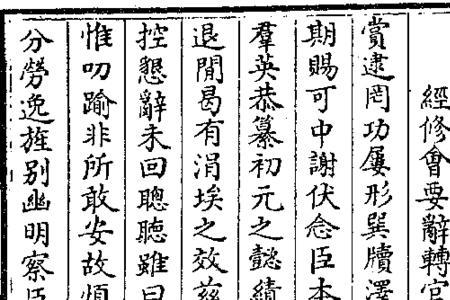 經修會要辭轉官
賞逮罔功屢形巽牘澤
期賜可中謝伏念臣本
羣英恭纂初元之懿績
退閒曷有涓埃之效兹
控懇辭未回聰聽雖曰
惟叨踰非所敢安故煩
分勞逸旌别幽明察臣